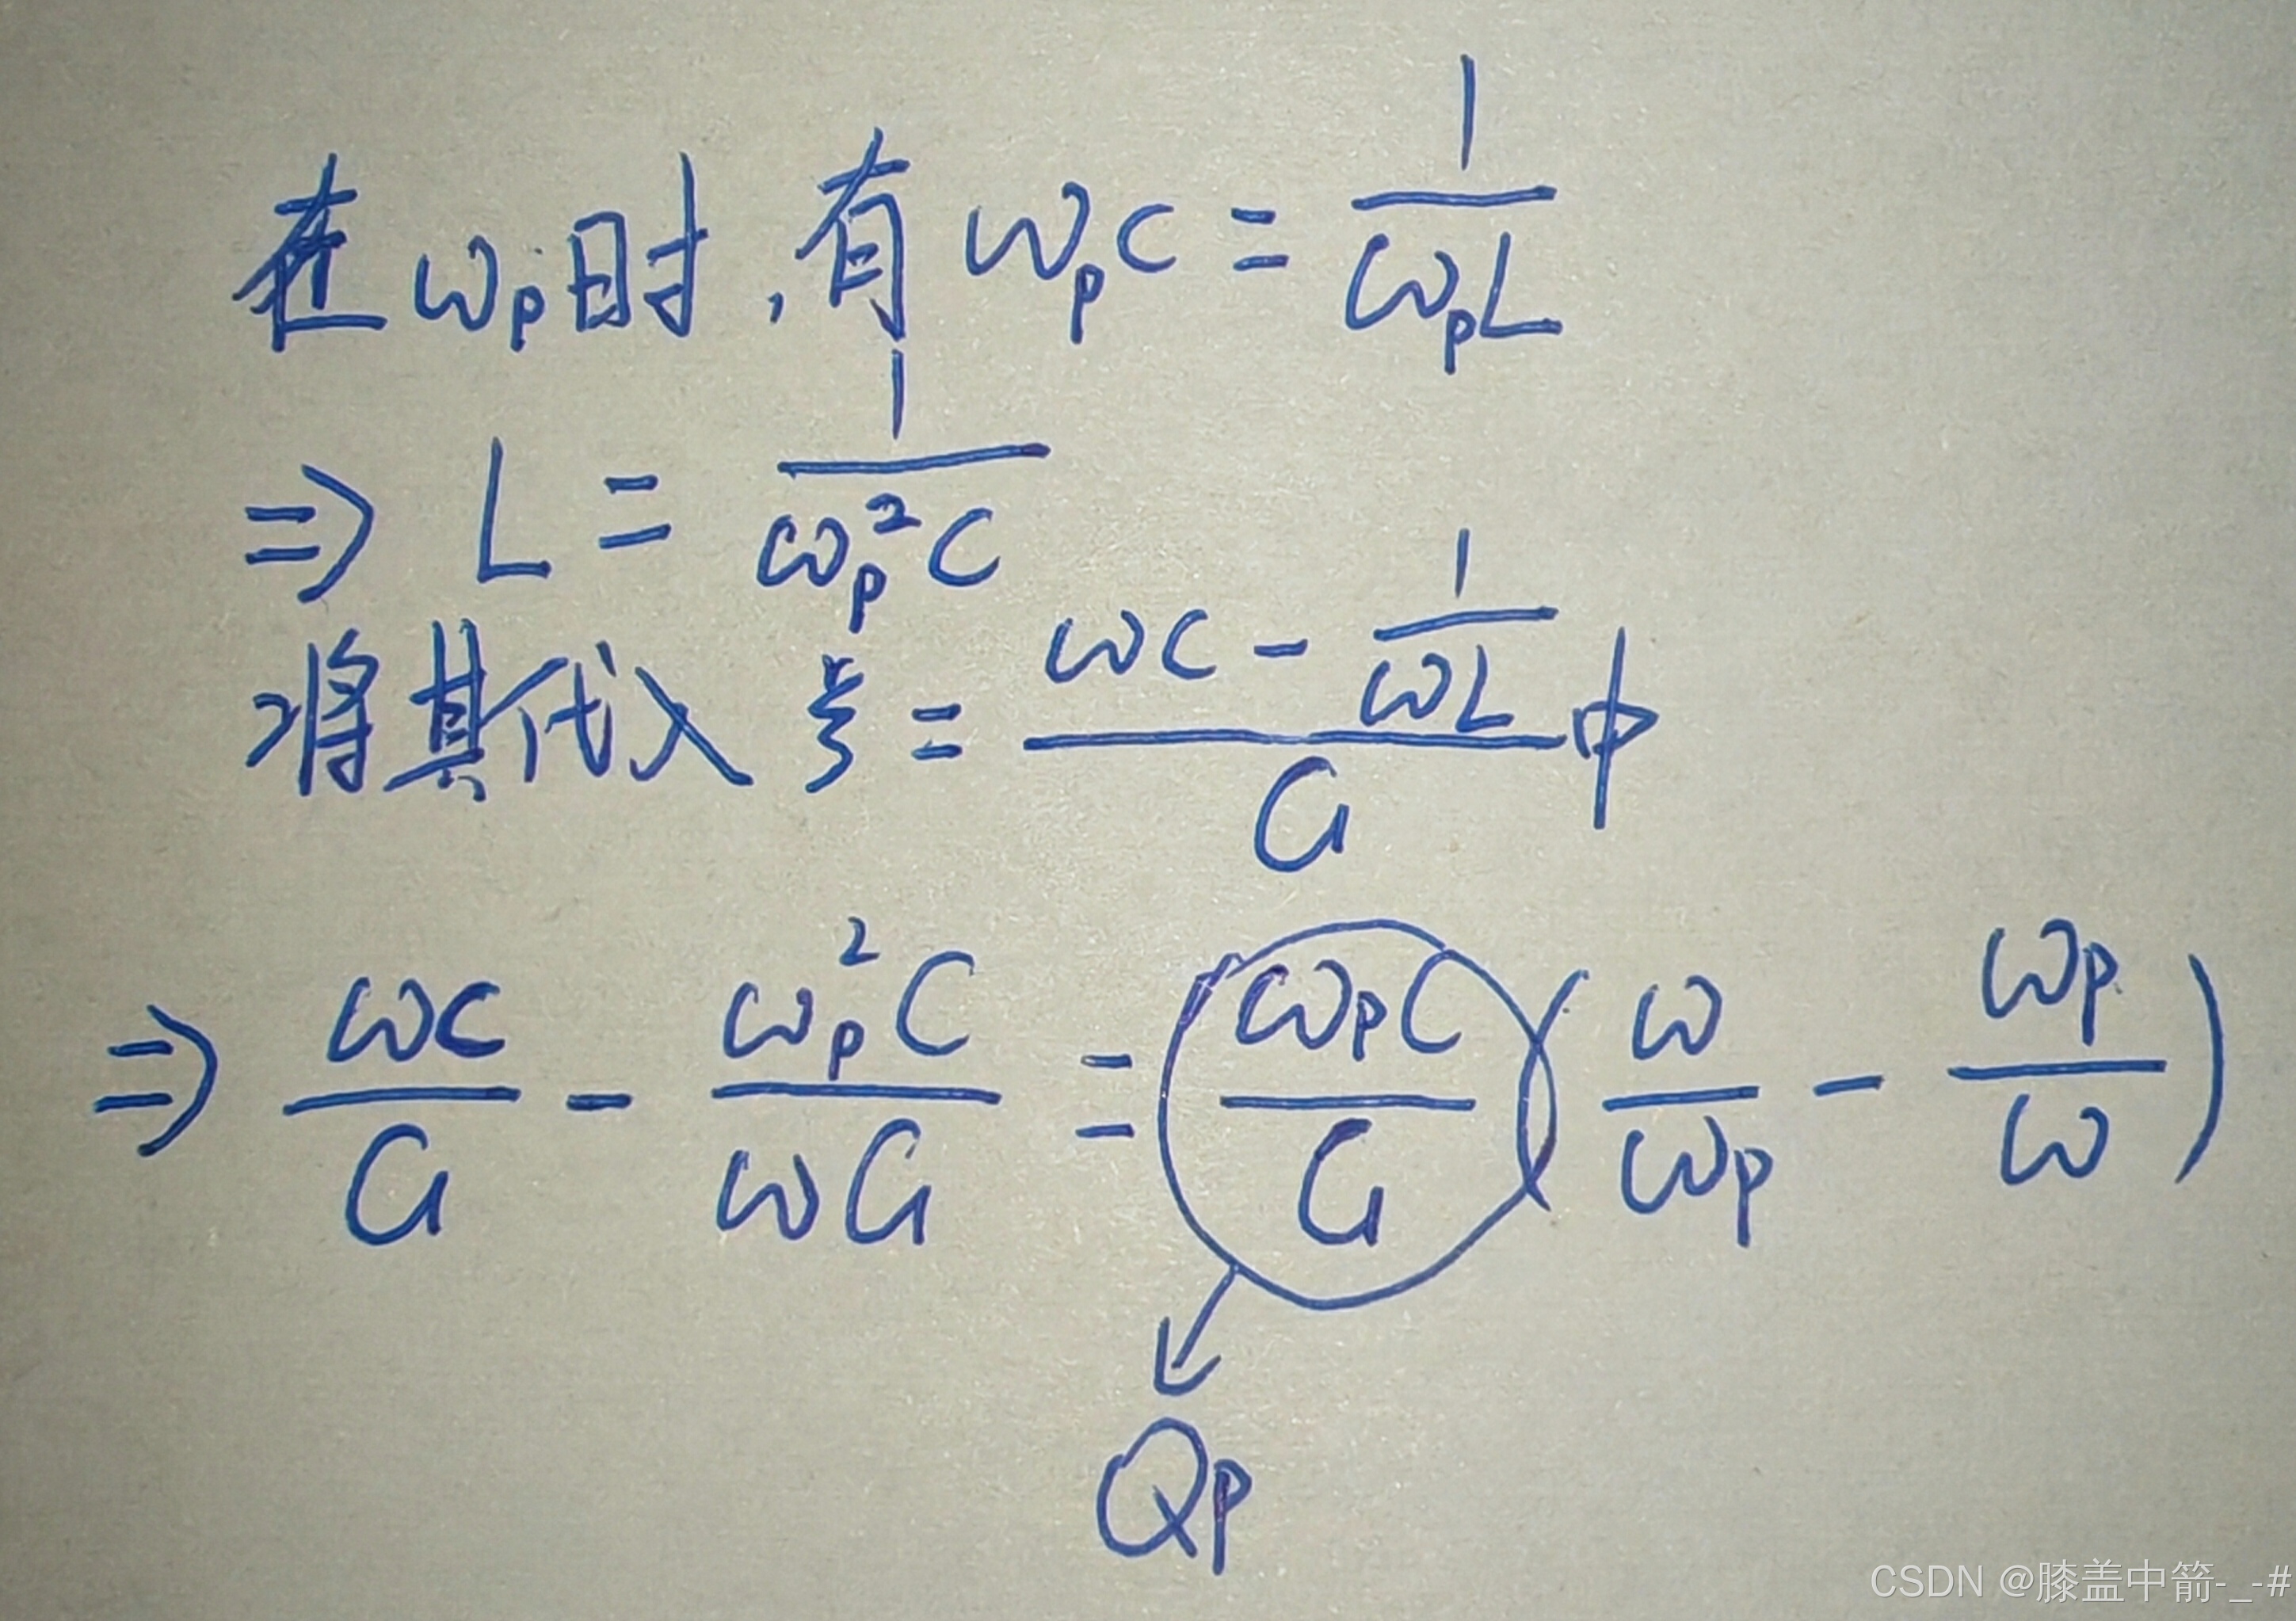 在ωₚ时,有 ωₚC = 1/(ωₚL)
⇒ L = 1/(ωₚ²C)
将其代入 ξ = (ωC - 1/(ωL))/G 中
⇒ ωC/G - ωₚ²C/(ωG) = ωₚC/G (ω/ωₚ - ωₚ/ω)
Qₚ
CSDN @膝盖中箭-_-#